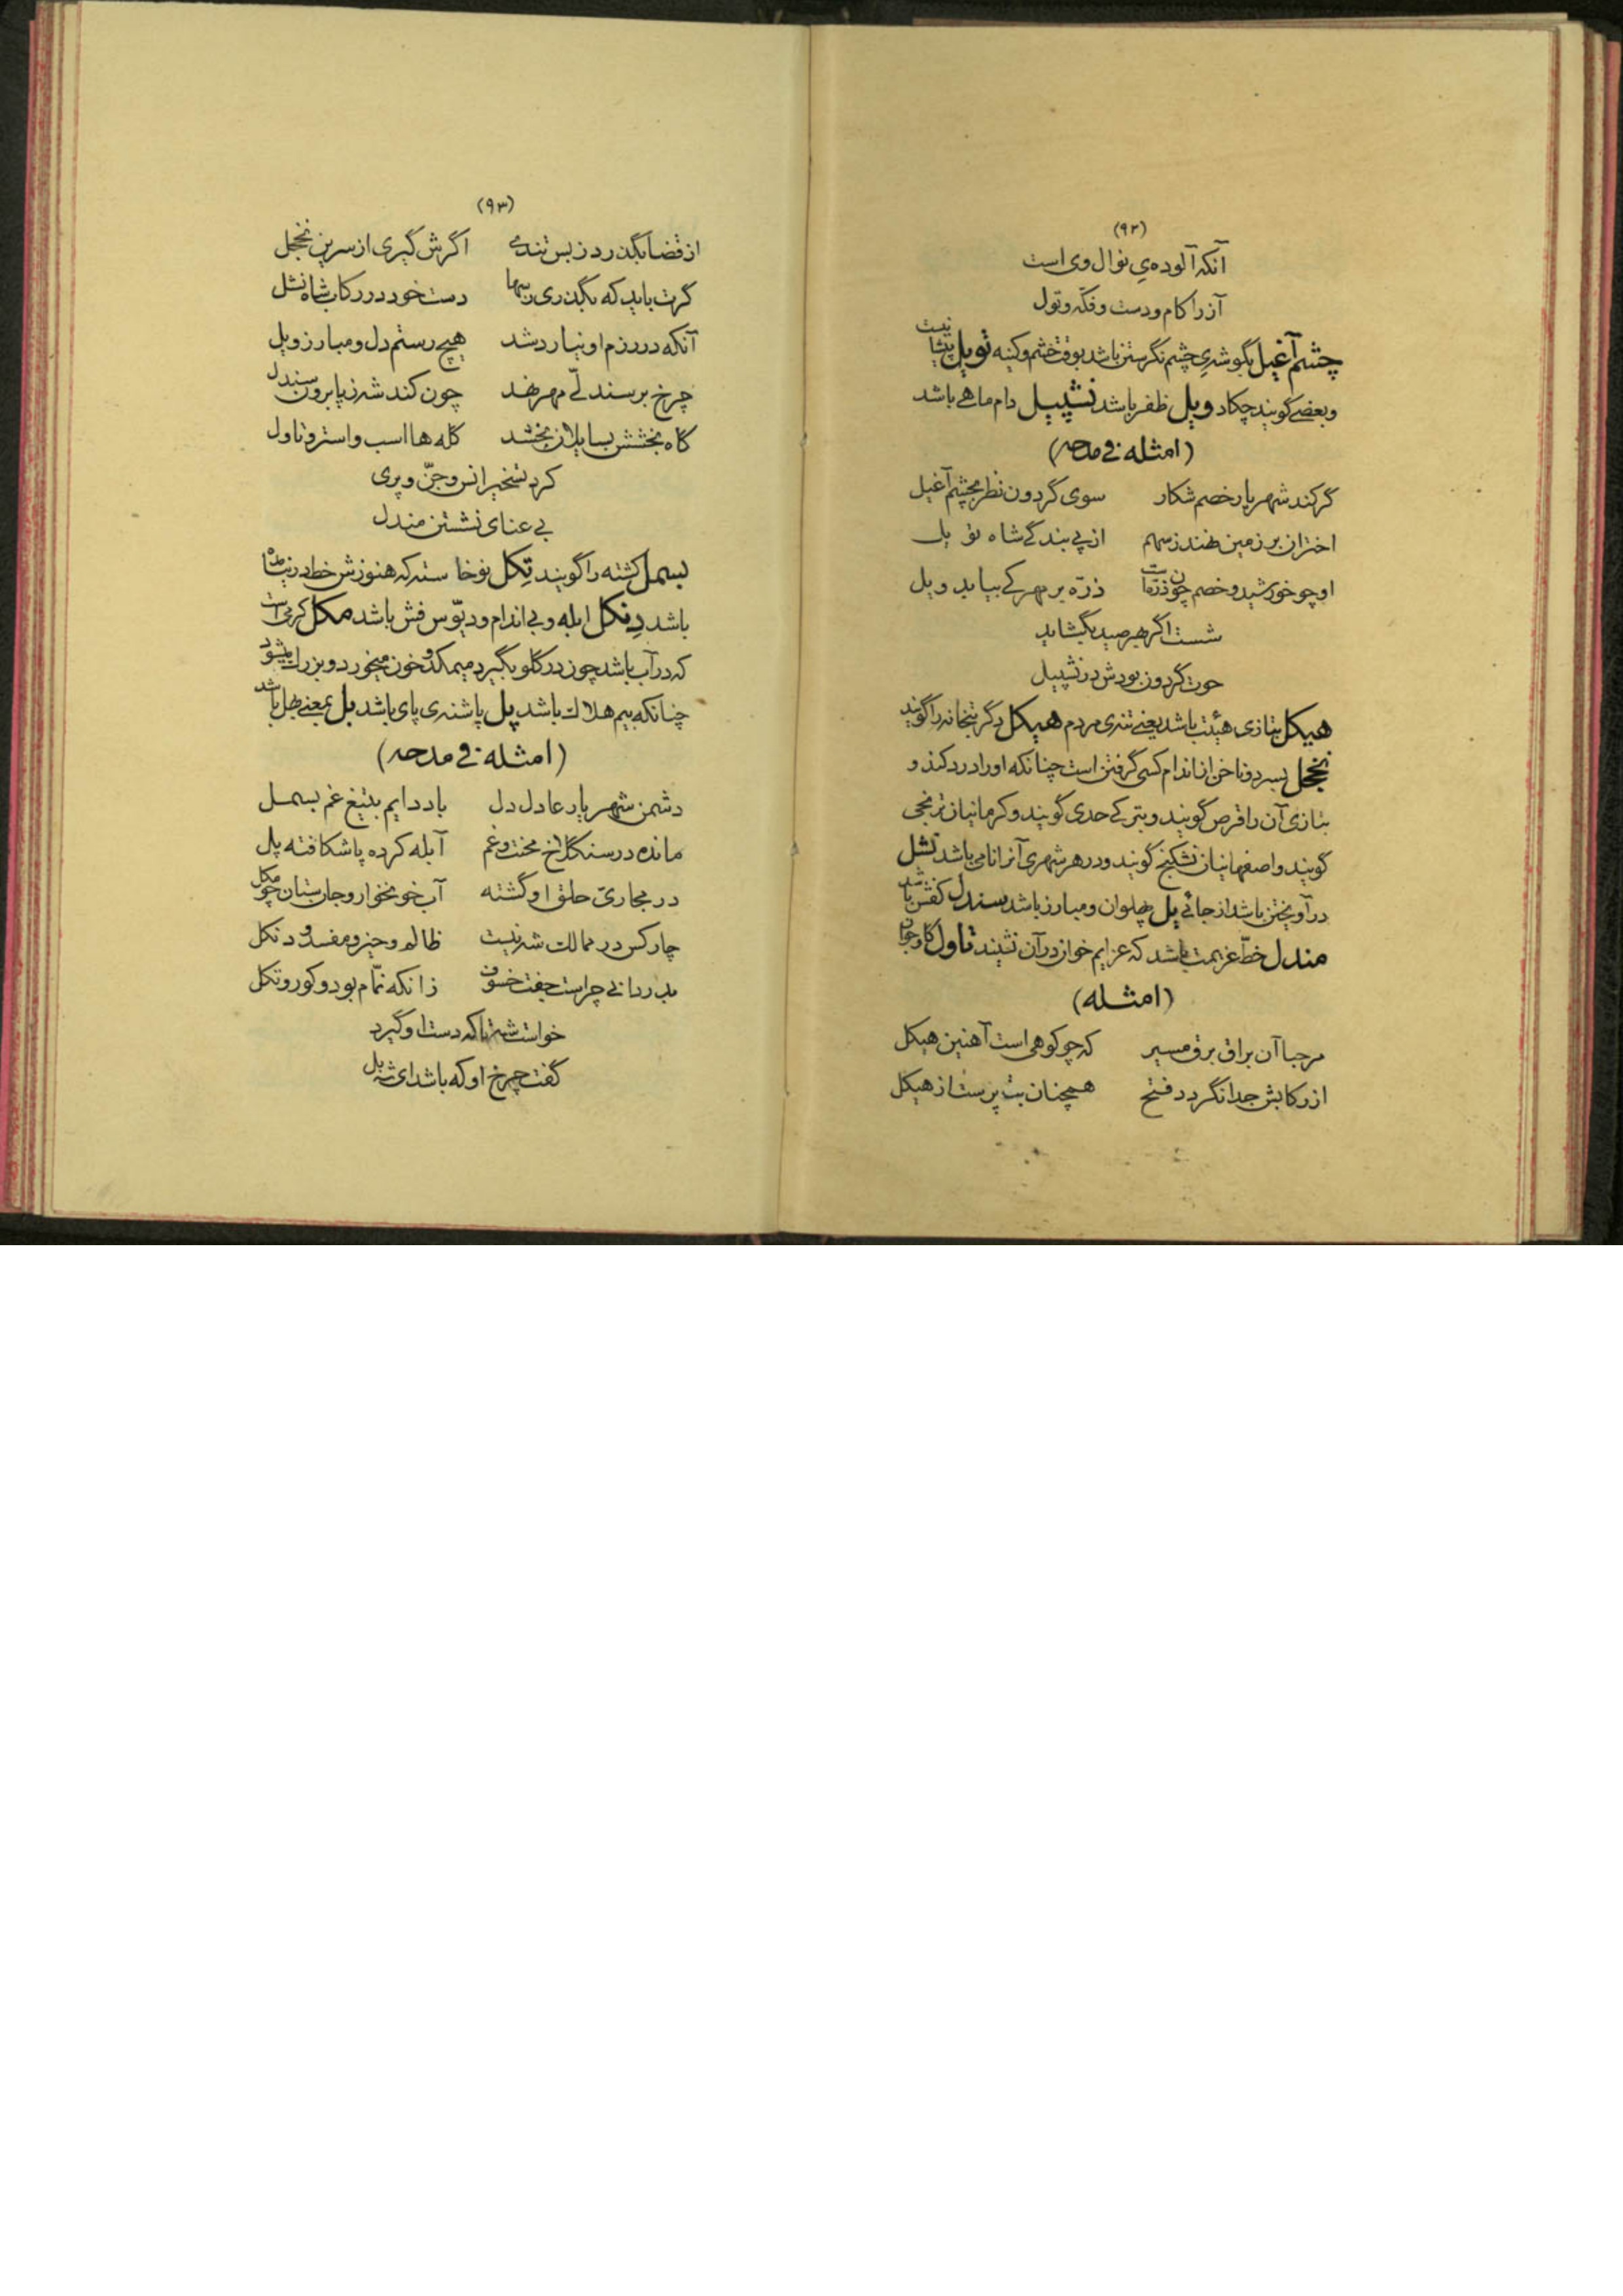 (۹۲)
آنکه آلوده‌ی نوال وی است
آز را کام و دست و فکّه و تول
چشم آغیل بگوشه‌ی چشم نگرستن باشد بوقت خشم و کینه تویل پیشانیست
و بعضی گویند چکاد ویل ظفر باشد نشپیل دام ماهی باشد
(امثله فی مدحه)
گر کند شهریار خصم شکار سوی گردون نظر بچشم آغیل
اختران بر زمین نهند ز سهم از پی بندگی شاه تویل
او چو خورشید و خصم چون ذرّه است ذرّه بر مهر کی بیابد ویل
شست اگر بهر صید بگشاید
حوت گردون بودش در نشپیل
هیکل بتازی هیئت باشد یعنی تنه‌ی مردم هیکل دگر بتخانه را گویند
نخجل بسر دو ناخن از اندام کسی گرفتن است چنانکه او را درد کند و
بتازی آن را قرص گویند و بترکی حدی گویند و کرمانیان ترنجی
گویند و اصفهانیان تشکنج گویند و در هر شهری آنرا نامی باشد نشل
در آویختن باشد از جائی یل پهلوان و مبارز باشد سندل کفش باشد
مندل خطّ عزیمت باشد که عزایم خوان در آن نشیند تاول گاو جوان
(امثله)
مرحبا آن براق برق مسیر که چو کوهی است آهنین هیکل
از رکابش جدا نگردد فتح همچنان بت پرست از هیکل
(۹۳)
از قضا بگذرد ز بس تندی اگرش گیری از سرین نخجل
گرت باید که بگذری ز سها دست خود در رکاب شاه نشل
آنکه در رزم او نیارد شد هیچ رستم دل و مبارز و یل
چرخ بر سندلی مهر نهد چون کند شه ز پا برون سندل
گاه بخشش بسایلان بخشد گله ها اسب و استر و تاول
کرد تسخیر انس و جنّ و پری
بی عنای نشستن مندل
بسمل کشته را گویند تکل نوخاسته که هنوزش خط در نیامده
باشد دنکل ابله و بی اندام و دیّوس فش باشد مکل کرمی است
که در آب باشد چون در گلو بگیرد میمکد و خون میخورد و بزرگ میشود
چنانکه بیم هلاک باشد پل پاشنه‌ی پای باشد بل بمعنی بهل باشد
(امثله فی مدحه)
دشمن شهریار عادل دل باد دایم بتیغ غم بسمل
مانده در سنگلاخ محنت و غم آبله کرده پا شکافته پل
در مجاریّ حلق او گشته آب خونخوار و جان ستان چو مکل
چار کس در ممالک شه نیست ظالم و حیز و مفسد و دنکل
بدر دانی چراست جفت خسوف زانکه نمّام بود و کور و تکل
خواست شه تا که دست او گیرد
گفت چرخ او که باشد ای شه بل